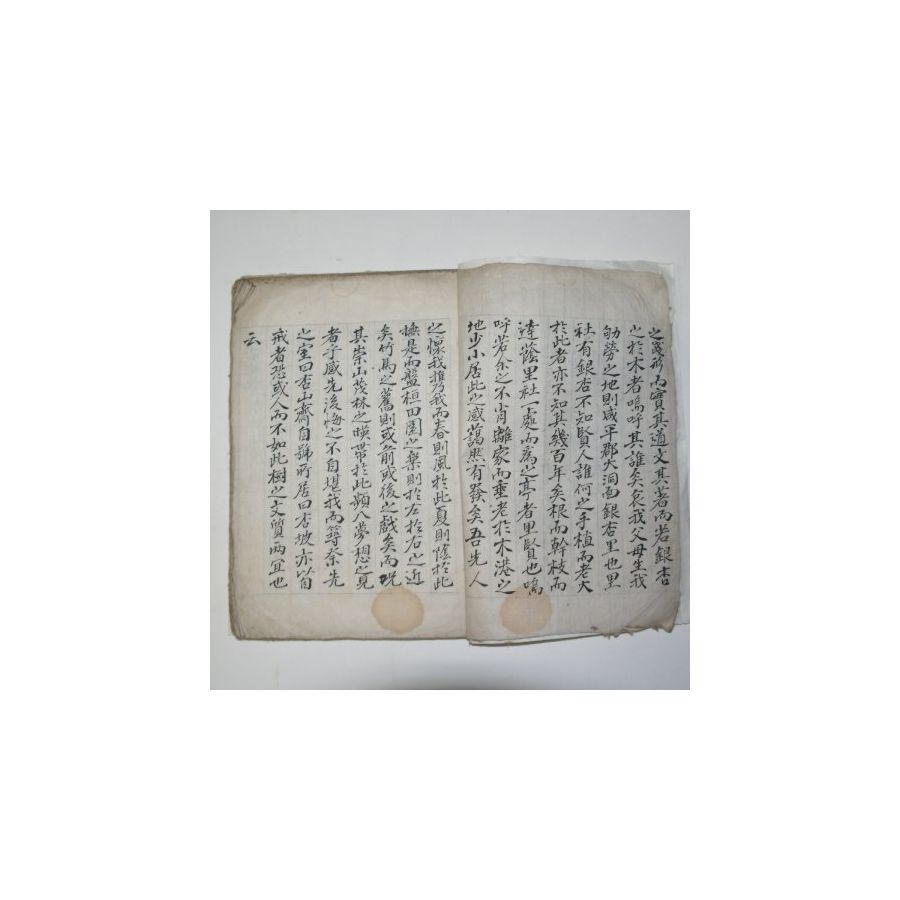 之為所而實其適文其著而若銀杏
之於木者嗚呼其誰矣哀我父母生我
劬勞之地則咸平郡大洞面銀杏里也里
社有銀杏不知賢人誰何之手植而老大
於此者亦不知其幾百年矣根而幹枝而
達蔭里社一處而為之亭者里賢也嗚
呼若余之不肖離家而垂老於木港之
地少小居此之感藹然有發矣吾先人
之懷我携乃我而春則風於此夏則蔭於此
撫是而盤桓田園之樂則於左於右之近
矣竹馬之舊則或前或後之戲矣而況
其崇山茂林之暎帶於此頻入夢想之見
者乎感先後悔之不自堪我而尊奉先
之室曰杏山齋自號所居曰杏坡亦以自
戒者恐或人而不如此樹之文質兩宜也
云